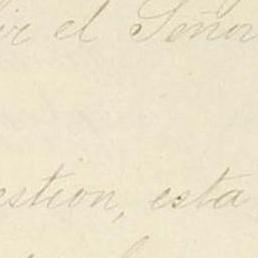 el Señor
estion, esta